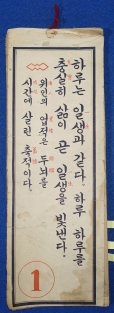 하루는 일생과 같다. 하루 하루를
충실히 삶이 곧 일생을 빛낸다.
위인의 업적은 두뇌를
시간에 살린 축적이다.
1